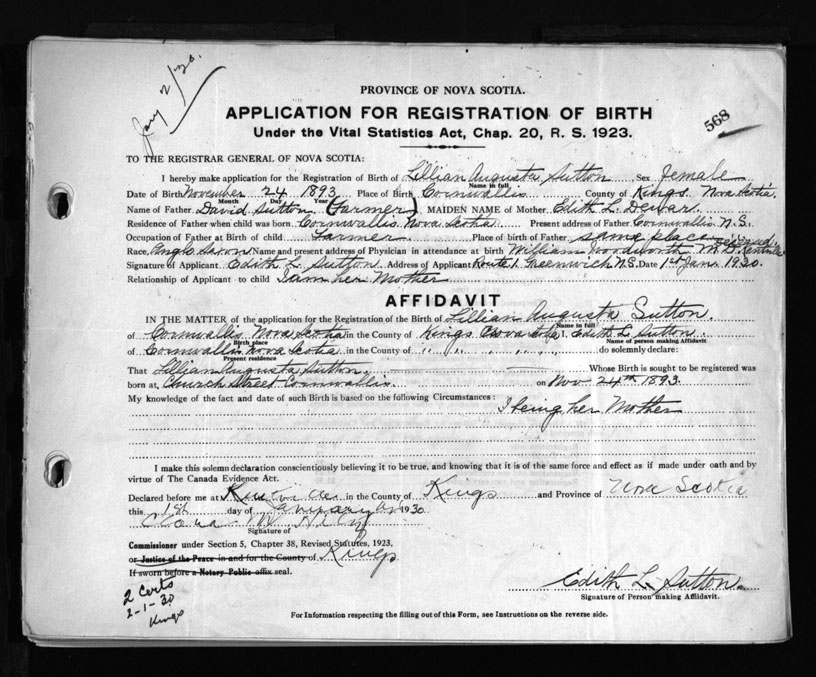 Jany 2/30.
PROVINCE OF NOVA SCOTIA.
568
APPLICATION FOR REGISTRATION OF BIRTH
Under the Vital Statistics Act, Chap. 20, R. S. 1923.
TO THE REGISTRAR GENERAL OF NOVA SCOTIA:
I hereby make application for the Registration of Birth of Lillian Augusta Sutton Sex female
Name in full
Date of Birth November 24 1893 Place of Birth Cornwallis County of Kings Nova Scotia.
Month Day Year
Name of Father David Sutton (Farmer) MAIDEN NAME of Mother Edith L. Dewar.
Residence of Father when child was born Cornwallis Nova Scotia Present address of Father Cornwallis N.S.
Occupation of Father at Birth of child Farmer Place of birth of Father same place
Race, Anglo Saxon Name and present address of Physician in attendance at birth William Woodworth M.D. Kentville
Signature of Applicant Edith L. Sutton Address of Applicant Route 1 Greenwich N.S. Date 1st Jan. 1930.
Relationship of Applicant to child I am her Mother
AFFIDAVIT
IN THE MATTER of the application for the Registration of the Birth of Lillian Augusta Sutton.
Name in full
of Cornwallis Nova Scotia in the County of Kings Nova Scotia I, Edith L. Sutton.
Birth place Name of person making Affidavit
of Cornwallis Nova Scotia in the County of " " " " " do solemnly declare:
Present residence
That Lillian Augusta Sutton. Whose Birth is sought to be registered was
born at Church Street Cornwallis. on Nov 24th 1893.
My knowledge of the fact and date of such Birth is based on the following Circumstances:
I being her Mother
I make this solemn declaration conscientiously believing it to be true, and knowing that it is of the same force and effect as if made under oath and by
virtue of The Canada Evidence Act.
Declared before me at Kentville in the County of Kings and Province of Nova Scotia
this 1st day of January 1930
Signature of
Commissioner under Section 5, Chapter 38, Revised Statutes, 1923,
or Justice of the Peace in and for the County of Kings
If sworn before a Notary Public affix seal.
2 Certs
2-1-30
Kings
Edith L. Sutton.
Signature of Person making Affidavit.
For Information respecting the filling out of this Form, see Instructions on the reverse side.